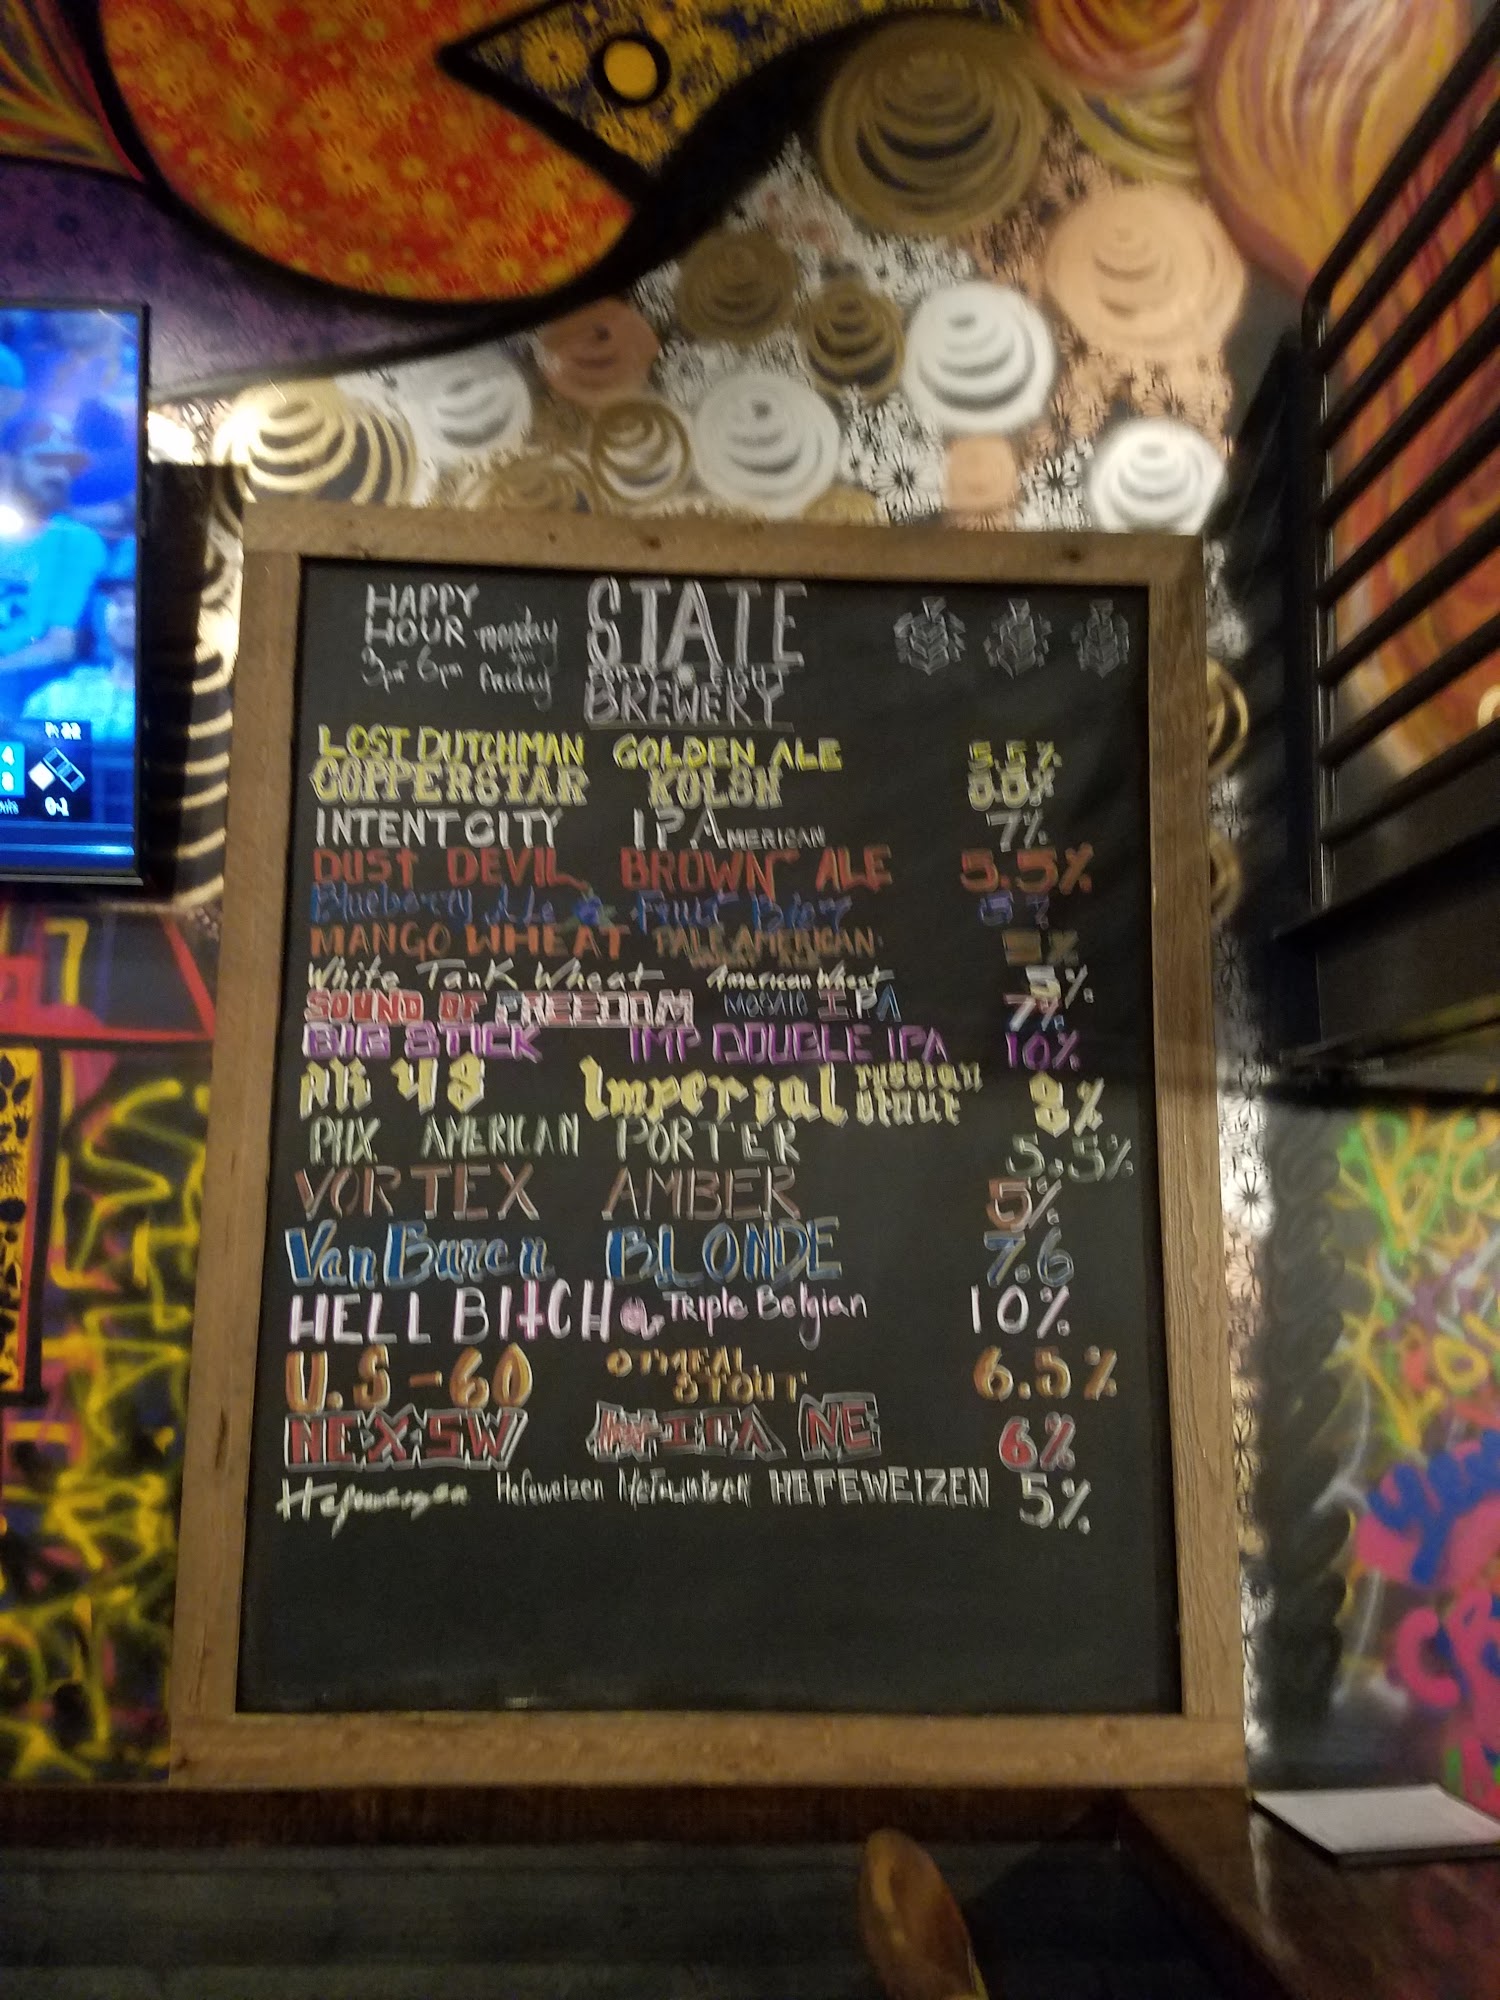 HAPPY
HOUR monday
3pm-6pm friday
STATE
FORTY EIGHT
BREWERY
LOST DUTCHMAN GOLDEN ALE 5.5%
COPPERSTAR KOLSH
INTENTCITY IPAMERICAN 7%
DUST DEVIL BROWN ALE 5.5%
Blueberry Ale Fruit Beer
MANGO WHEAT PALE AMERICAN 5%
White Tank Wheat American Wheat 5%
SOUND OF FREEDOM MOSAIC IPA 7%
BIG STICK IMP DOUBLE IPA 10%
48 Imperial russian stout
PHX AMERICAN PORTER 5.5%
VORTEX AMBER 5%
Van Buren BLONDE 7.6
HELL BITCH Triple Belgian 10%
U.S-60 OTMEAL STOUT 6.5%
NEX SW IPA NE 6%
Hefeweizen Hefeweizen Hefeweizen HEFEWEIZEN 5%
0-1